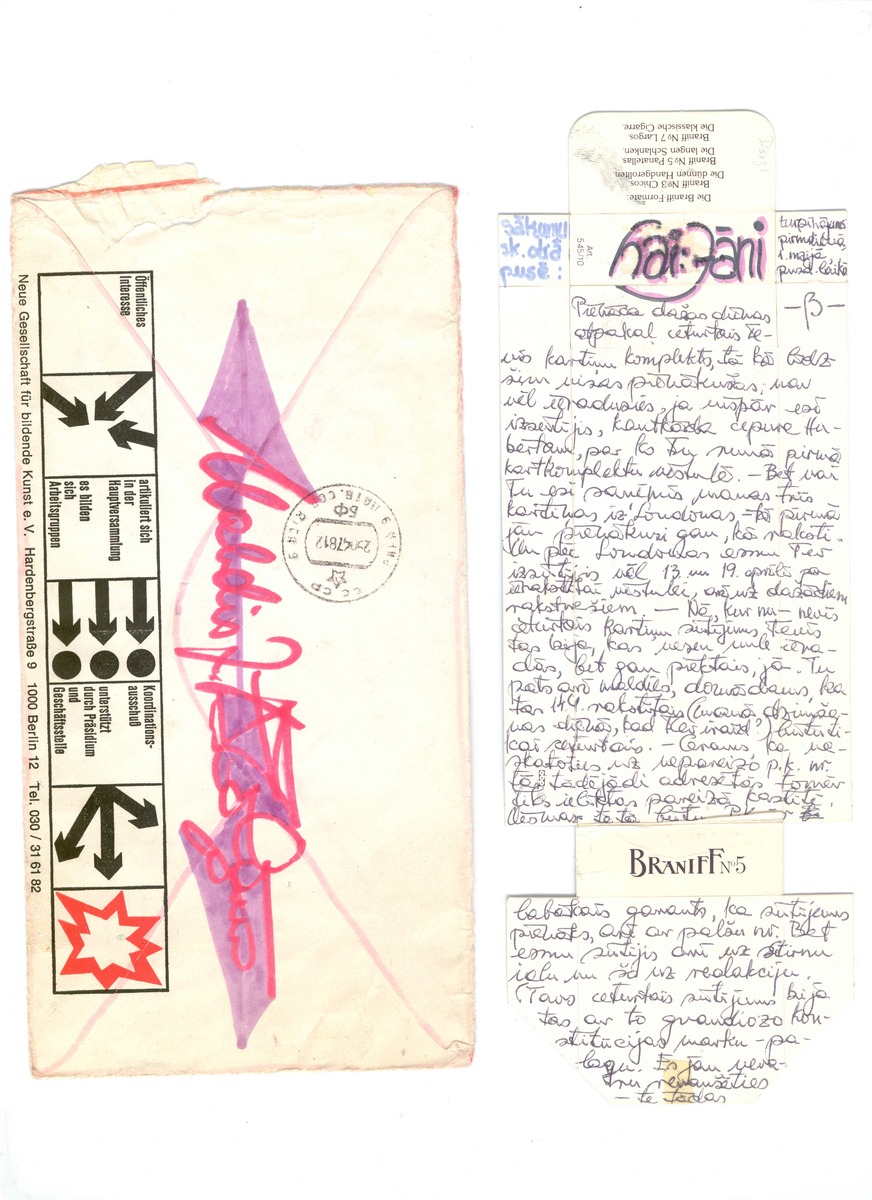 Öffentliches
Interesse
artikuliert sich
in der
Hauptversammlung
es bilden
sich
Arbeitsgruppen
Koordinations-
ausschuß
unterstützt
durch Präsidium
und
Geschäftsstelle
Neue Gesellschaft für bildende Kunst e. V. Hardenbergstraße 9 1000 Berlin 12 Tel. 030 / 31 61 82
Die Braniff-Formate:
Braniff No 3 Chicos.
Die dünnen Handgerollten.
Braniff No 5 Panatellas
Die langen Schlanken.
Braniff No 7 Largos.
Die klassische Cigarre.
Art.
545/10
sākumu
sk. otrā
pusē:
hai: Jāni
turpinājums
pirmdienā
1. maijā,
pusd. laikā
– β –
Pienāca dažas dienas
atpakaļ ceturtais Te-
vis kartiņu komplekts, tā kā līdz-
šim visas pienākušas; nav
vēl ieradusies, ja vispār esi
izsūtījis, kautkāda cepure Hu-
bertam, par ko Tu runā pirmā
kartkomplekta vēstulē. – Bet vai
Tu esi saņēmis manas trīs
kartiņas iz Londonas – tā pirmā
jau pienākusi gan, kā raksti.
Un pēc Londonas esmu Tev
izsūtījis vēl 13. un 19. aprīlī pa
ierakstītai vēstulei, arī uz dažādiem
rakstvežiem. – Nē, kur nu – nevis
ceturtais kartiņu sūtījums Tevis
tas bija, kas nesen nule iera-
dās, bet gan piektais, jā. Tu
pats arī maldies, domādams, ka
tas 14.4. rakstītais (manā dzimša-
nas dienā,
ceturtais. – Ceru, ka ne-
skatoties uz nepareizo p.k. nr.
tās tādējādi adresētās tomēr
tiks ieliktas pareizā kastītē.
BRANIFF No 5
labākais garants, ka sūtījums
pienāks, arī ar pašu nr. Bet
esmu sūtījis arī uz Stirnu
ielu un šo uz redakciju.
(Tavs ceturtais sūtījums bija
tas ar to grandiozo kon-
stitūcijas marku – pa-
lagu. Es jau neva-
ru revanšēties
– te tādas